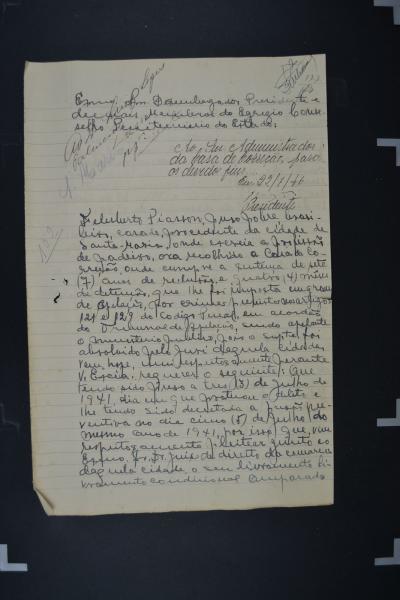 Exmo. Snr. Desembargador Presidente e
de mais Membros do Egregio Conse-
selho Penitenciario do Estado:
Ao Snr. Administrador
da Casa de Correção, para
os devidos fins.
Em 22/1/46
Presidente
Felisberto Pearson, preso pobre, brasi-
leiro, casado, procedente da cidade de
Santa Maria, onde exercia a profissão
de padeiro, ora recolhido a Casa de Co-
rreção, onde cumpre a sentença de sete
(7) anos de reclusão e quatro (4) mêses
de detensão, que lhe foi imposta em gráu
de apelação, por crimes previstos nos artigos
121 e 129 do Codigo Penal, em acordão
do Tribunal de Apelação, sendo apelante
o Ministerio Publico, pois o supte. foi
absolvido pelo Juri daquela cidade,
vem hoje, mui respeitosamente perante
V. Excia. requerer o seguinte: Que
tendo sido preso a tres (3) de Junho de
1941, dia em que praticou o delito e
lhe tendo sido decretada a prisão pre-
ventiva no dia cinco (5) de Junho do
mesmo ano de 1941, por isso, que, vem
respeitosamente pleitear junto ao
Exmo. Sr. Dr. Juiz de direito da comarca
daquela cidade, o seu livramento
condicional amparado